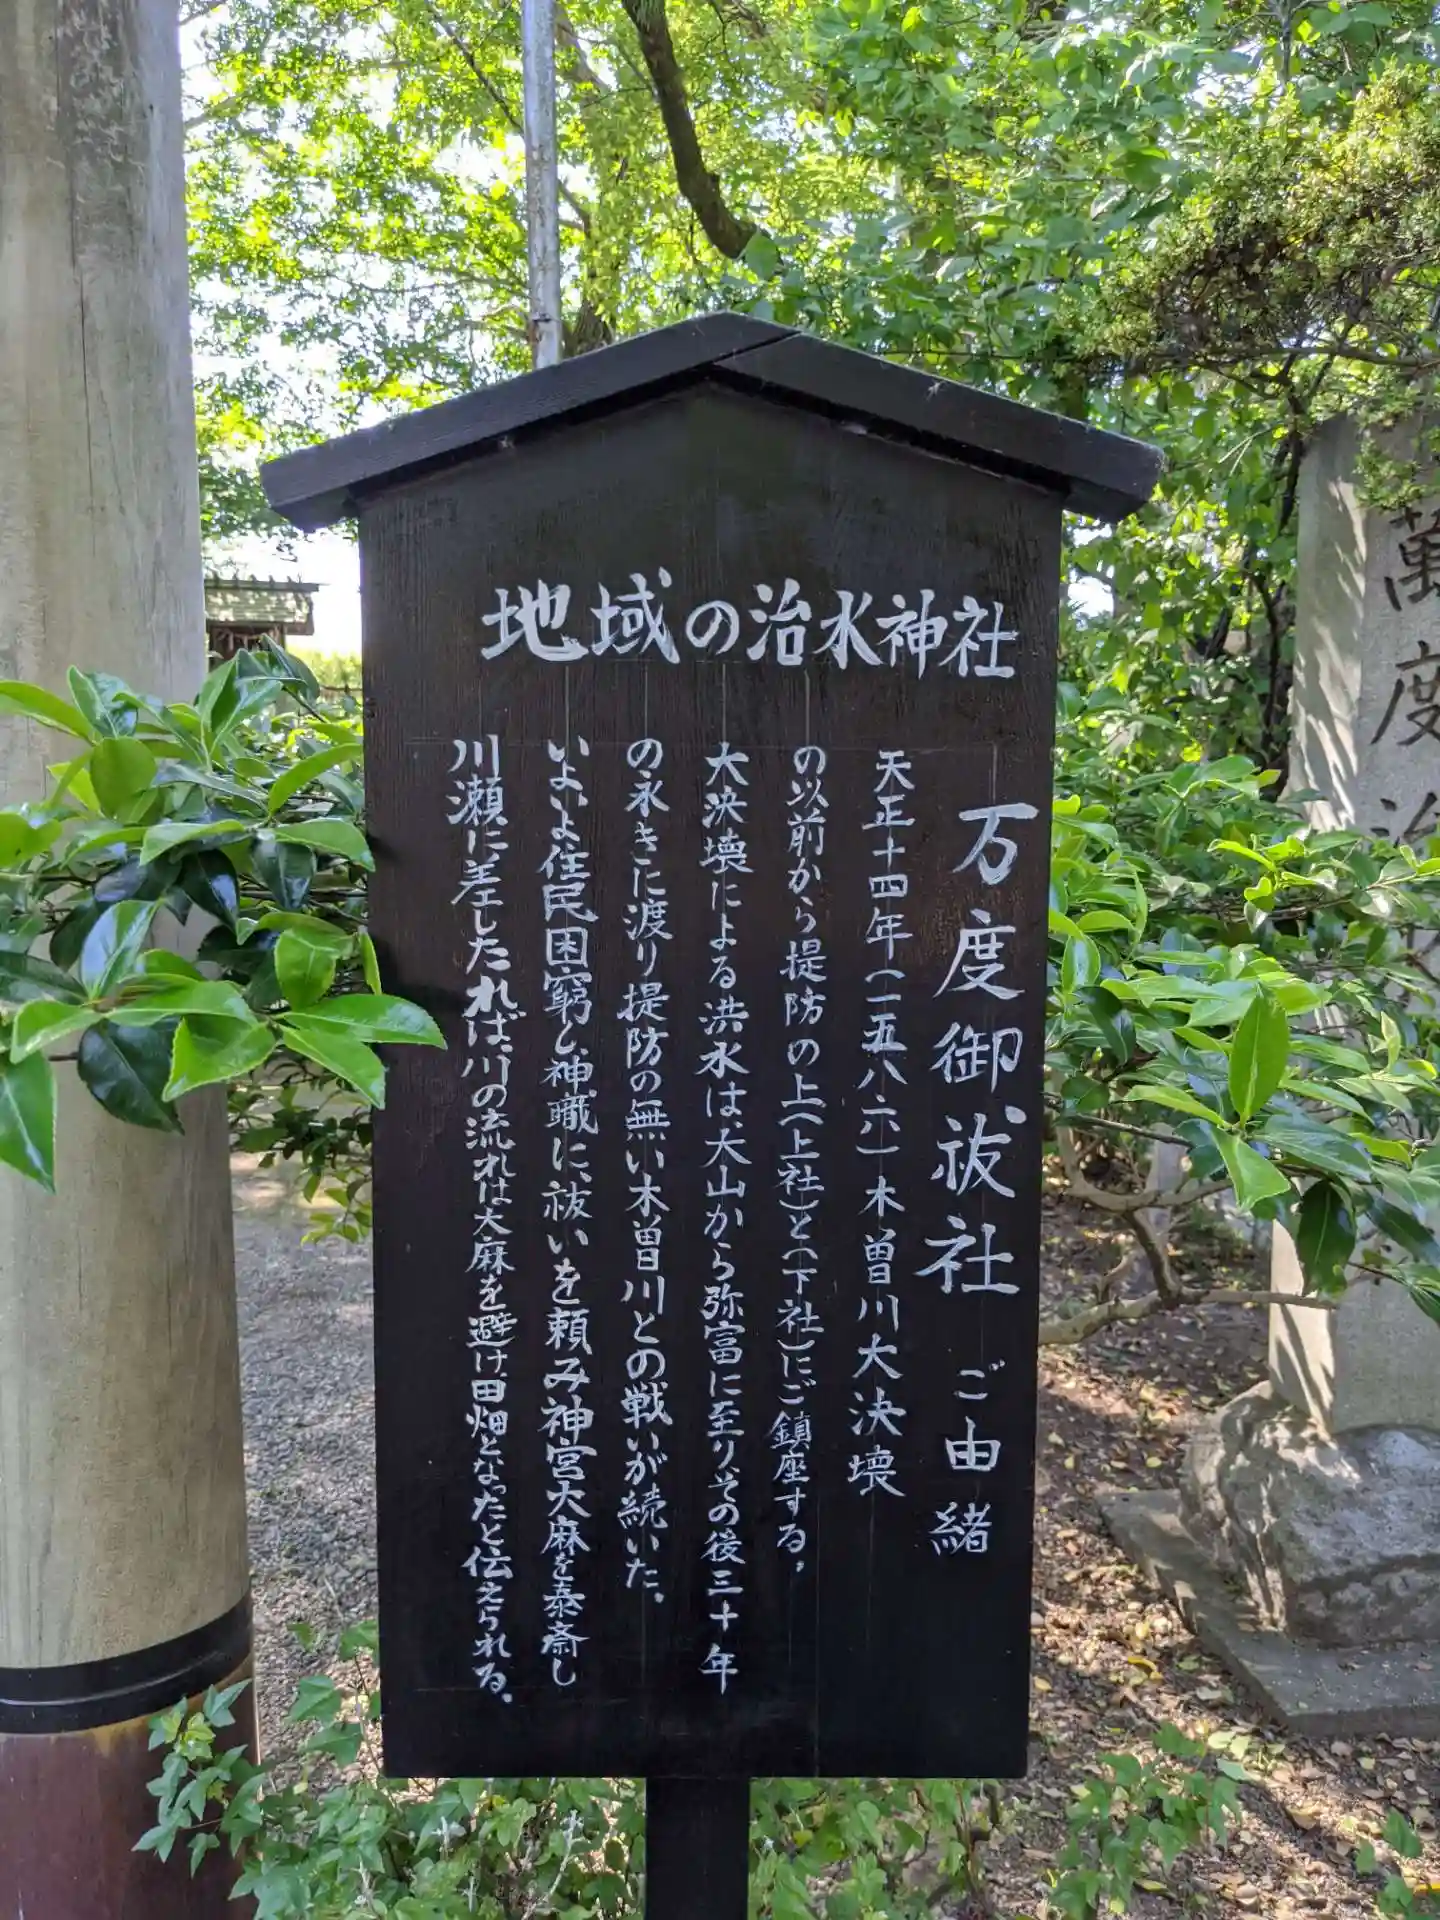 地域の治水神社
万度御祓社 ご由緒
天正十四年(一五八六)木曽川大決壊
の以前から提防の上(上社)と(下社)にご鎮座する。
大決壊による洪水は、犬山から弥富に至りその後三十年
の永きに渡り提防の無い木曽川との戦いが続いた。
いよいよ住民困窮し神職に、祓いを頼み神宮大麻を奉斎し
川瀬に差したれば、川の流れは大麻を避け田畑となったと伝えられる。
萬度